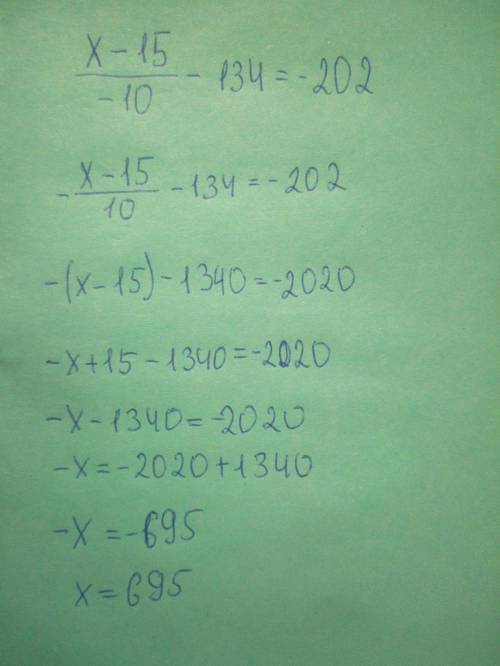 x - 15 / -10 - 134 = -202
- x - 15 / 10 - 134 = -202
-(x - 15) - 1340 = -2020
-x + 15 - 1340 = -2020
-x - 1340 = -2020
-x = -2020 + 1340
-x = -695
x = 695